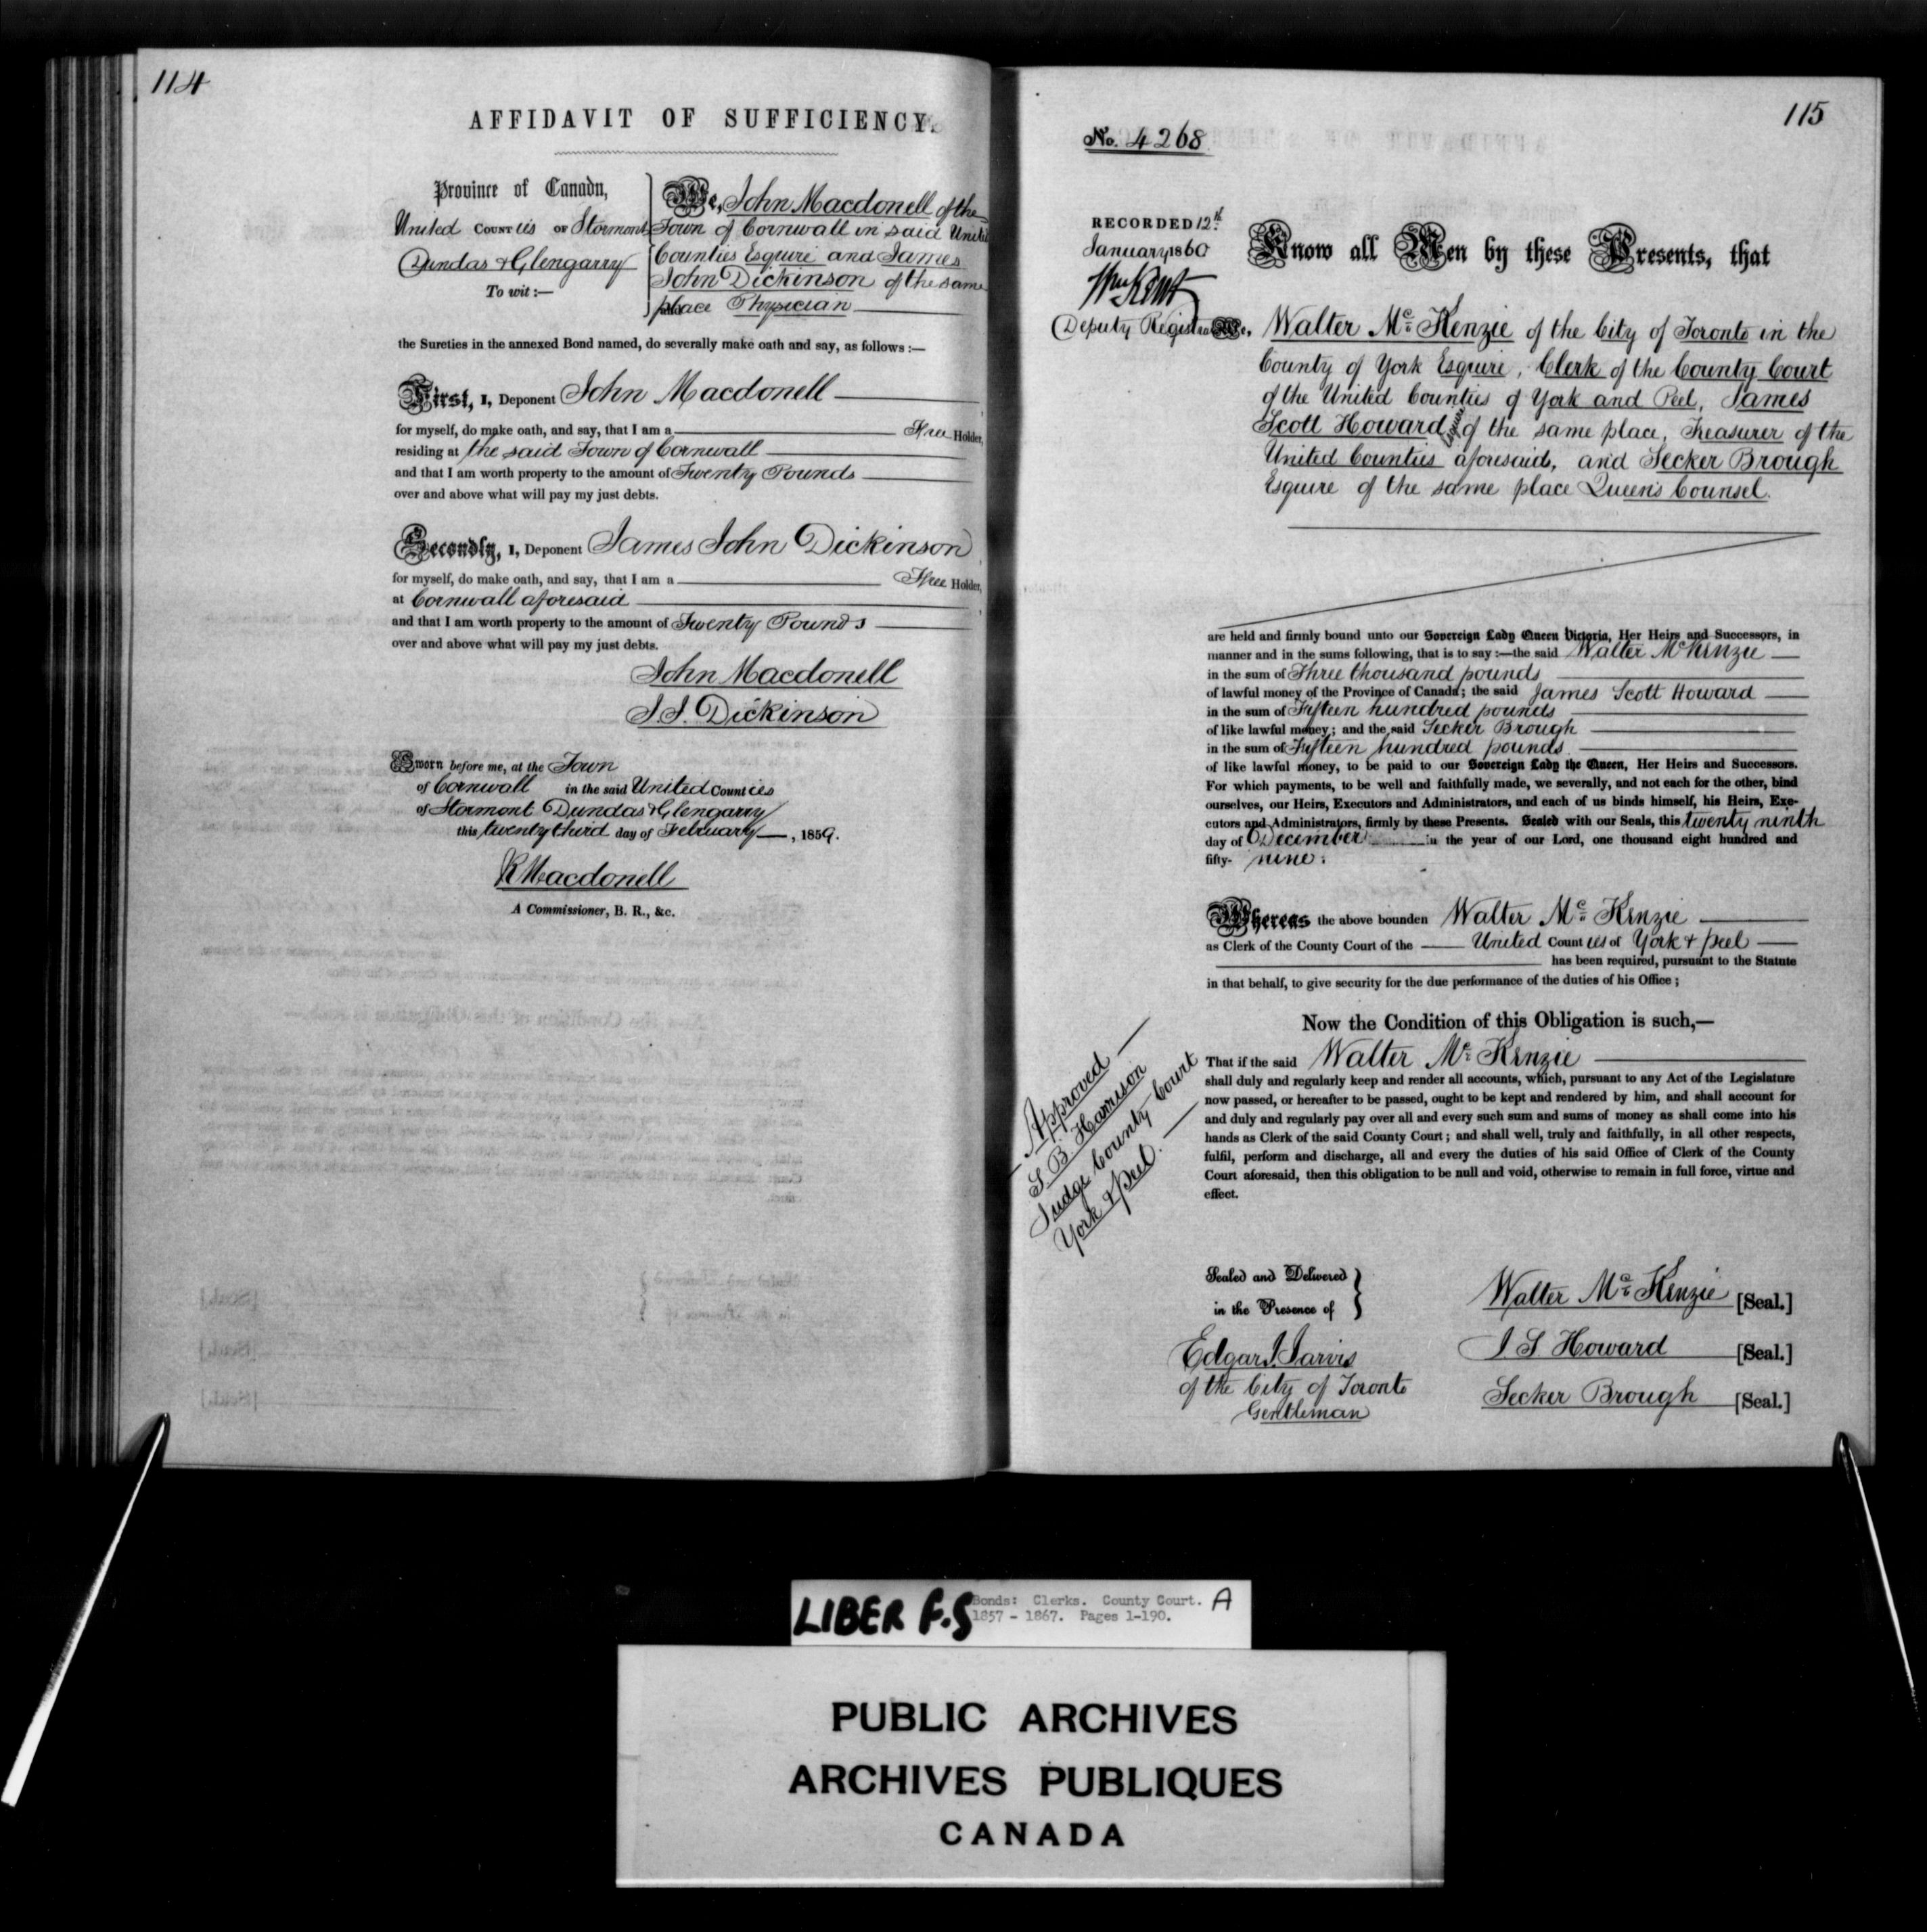 114
AFFIDAVIT OF SUFFICIENCY.
Province of Canada,
United COUNTies OF Stormont
Dundas & Glengarry
To wit :—
We, John Macdonell of the
Town of Cornwall in said United
Counties Esquire and James
John Dickinson of the same
place Physician
the Sureties in the annexed Bond named, do severally make oath and say, as follows :—
First, I, Deponent John Macdonell
for myself, do make oath, and say, that I am a Free Holder,
residing at the said Town of Cornwall
and that I am worth property to the amount of Twenty Pounds
over and above what will pay my just debts.
Secondly, I, Deponent James John Dickinson
for myself, do make oath, and say, that I am a Free Holder,
at Cornwall aforesaid
and that I am worth property to the amount of Twenty Pounds
over and above what will pay my just debts.
John Macdonell
J. J. Dickinson
Sworn before me, at the Town
of Cornwall in the said United Counties
of Stormont Dundas & Glengarry
this twenty third day of February —, 1859.
K Macdonell
A Commissioner, B. R., &c.
115
No. 4268
RECORDED 12th
January 1860
Wm Kent
Deputy Registrar
Know all Men by these Presents, that
We, Walter Mc Kenzie of the City of Toronto in the
County of York Esquire, Clerk of the County Court
of the United Counties of York and Peel, James
Scott Howard Esquire of the same place, Treasurer of the
United Counties aforesaid, and Secker Brough
Esquire of the same place Queen's Counsel.
are held and firmly bound unto our Sovereign Lady Queen Victoria, Her Heirs and Successors, in
manner and in the sums following, that is to say :—the said Walter McKenzie
in the sum of Three thousand pounds
of lawful money of the Province of Canada; the said James Scott Howard
in the sum of Fifteen hundred pounds
of like lawful money; and the said Secker Brough
in the sum of Fifteen hundred pounds
of like lawful money, to be paid to our Sovereign Lady the Queen, Her Heirs and Successors.
For which payments, to be well and faithfully made, we severally, and not each for the other, bind
ourselves, our Heirs, Executors and Administrators, and each of us binds himself, his Heirs, Exe-
cutors and Administrators, firmly by these Presents. Sealed with our Seals, this twenty ninth
day of December in the year of our Lord, one thousand eight hundred and
fifty- nine.
Whereas the above bounden Walter Mc Kenzie
as Clerk of the County Court of the United Counties of York & Peel
has been required, pursuant to the Statute
in that behalf, to give security for the due performance of the duties of his Office ;
Now the Condition of this Obligation is such,—
That if the said Walter Mc Kenzie
shall duly and regularly keep and render all accounts, which, pursuant to any Act of the Legislature
now passed, or hereafter to be passed, ought to be kept and rendered by him, and shall account for
and duly and regularly pay over all and every such sum and sums of money as shall come into his
hands as Clerk of the said County Court ; and shall well, truly and faithfully, in all other respects,
fulfil, perform and discharge, all and every the duties of his said Office of Clerk of the County
Court aforesaid, then this obligation to be null and void, otherwise to remain in full force, virtue and
effect.
Approved
S. B. Harrison
Judge County Court
York & Peel.
Sealed and Delivered
in the Presence of
Edgar J. Jarvis
of the City of Toronto
Gentleman
Walter Mc Kenzie [Seal.]
J S Howard [Seal.]
Secker Brough [Seal.]
LIBER F.S
Bonds: Clerks. County Court. A
1857 - 1867. Pages 1-190.
PUBLIC ARCHIVES
ARCHIVES PUBLIQUES
CANADA